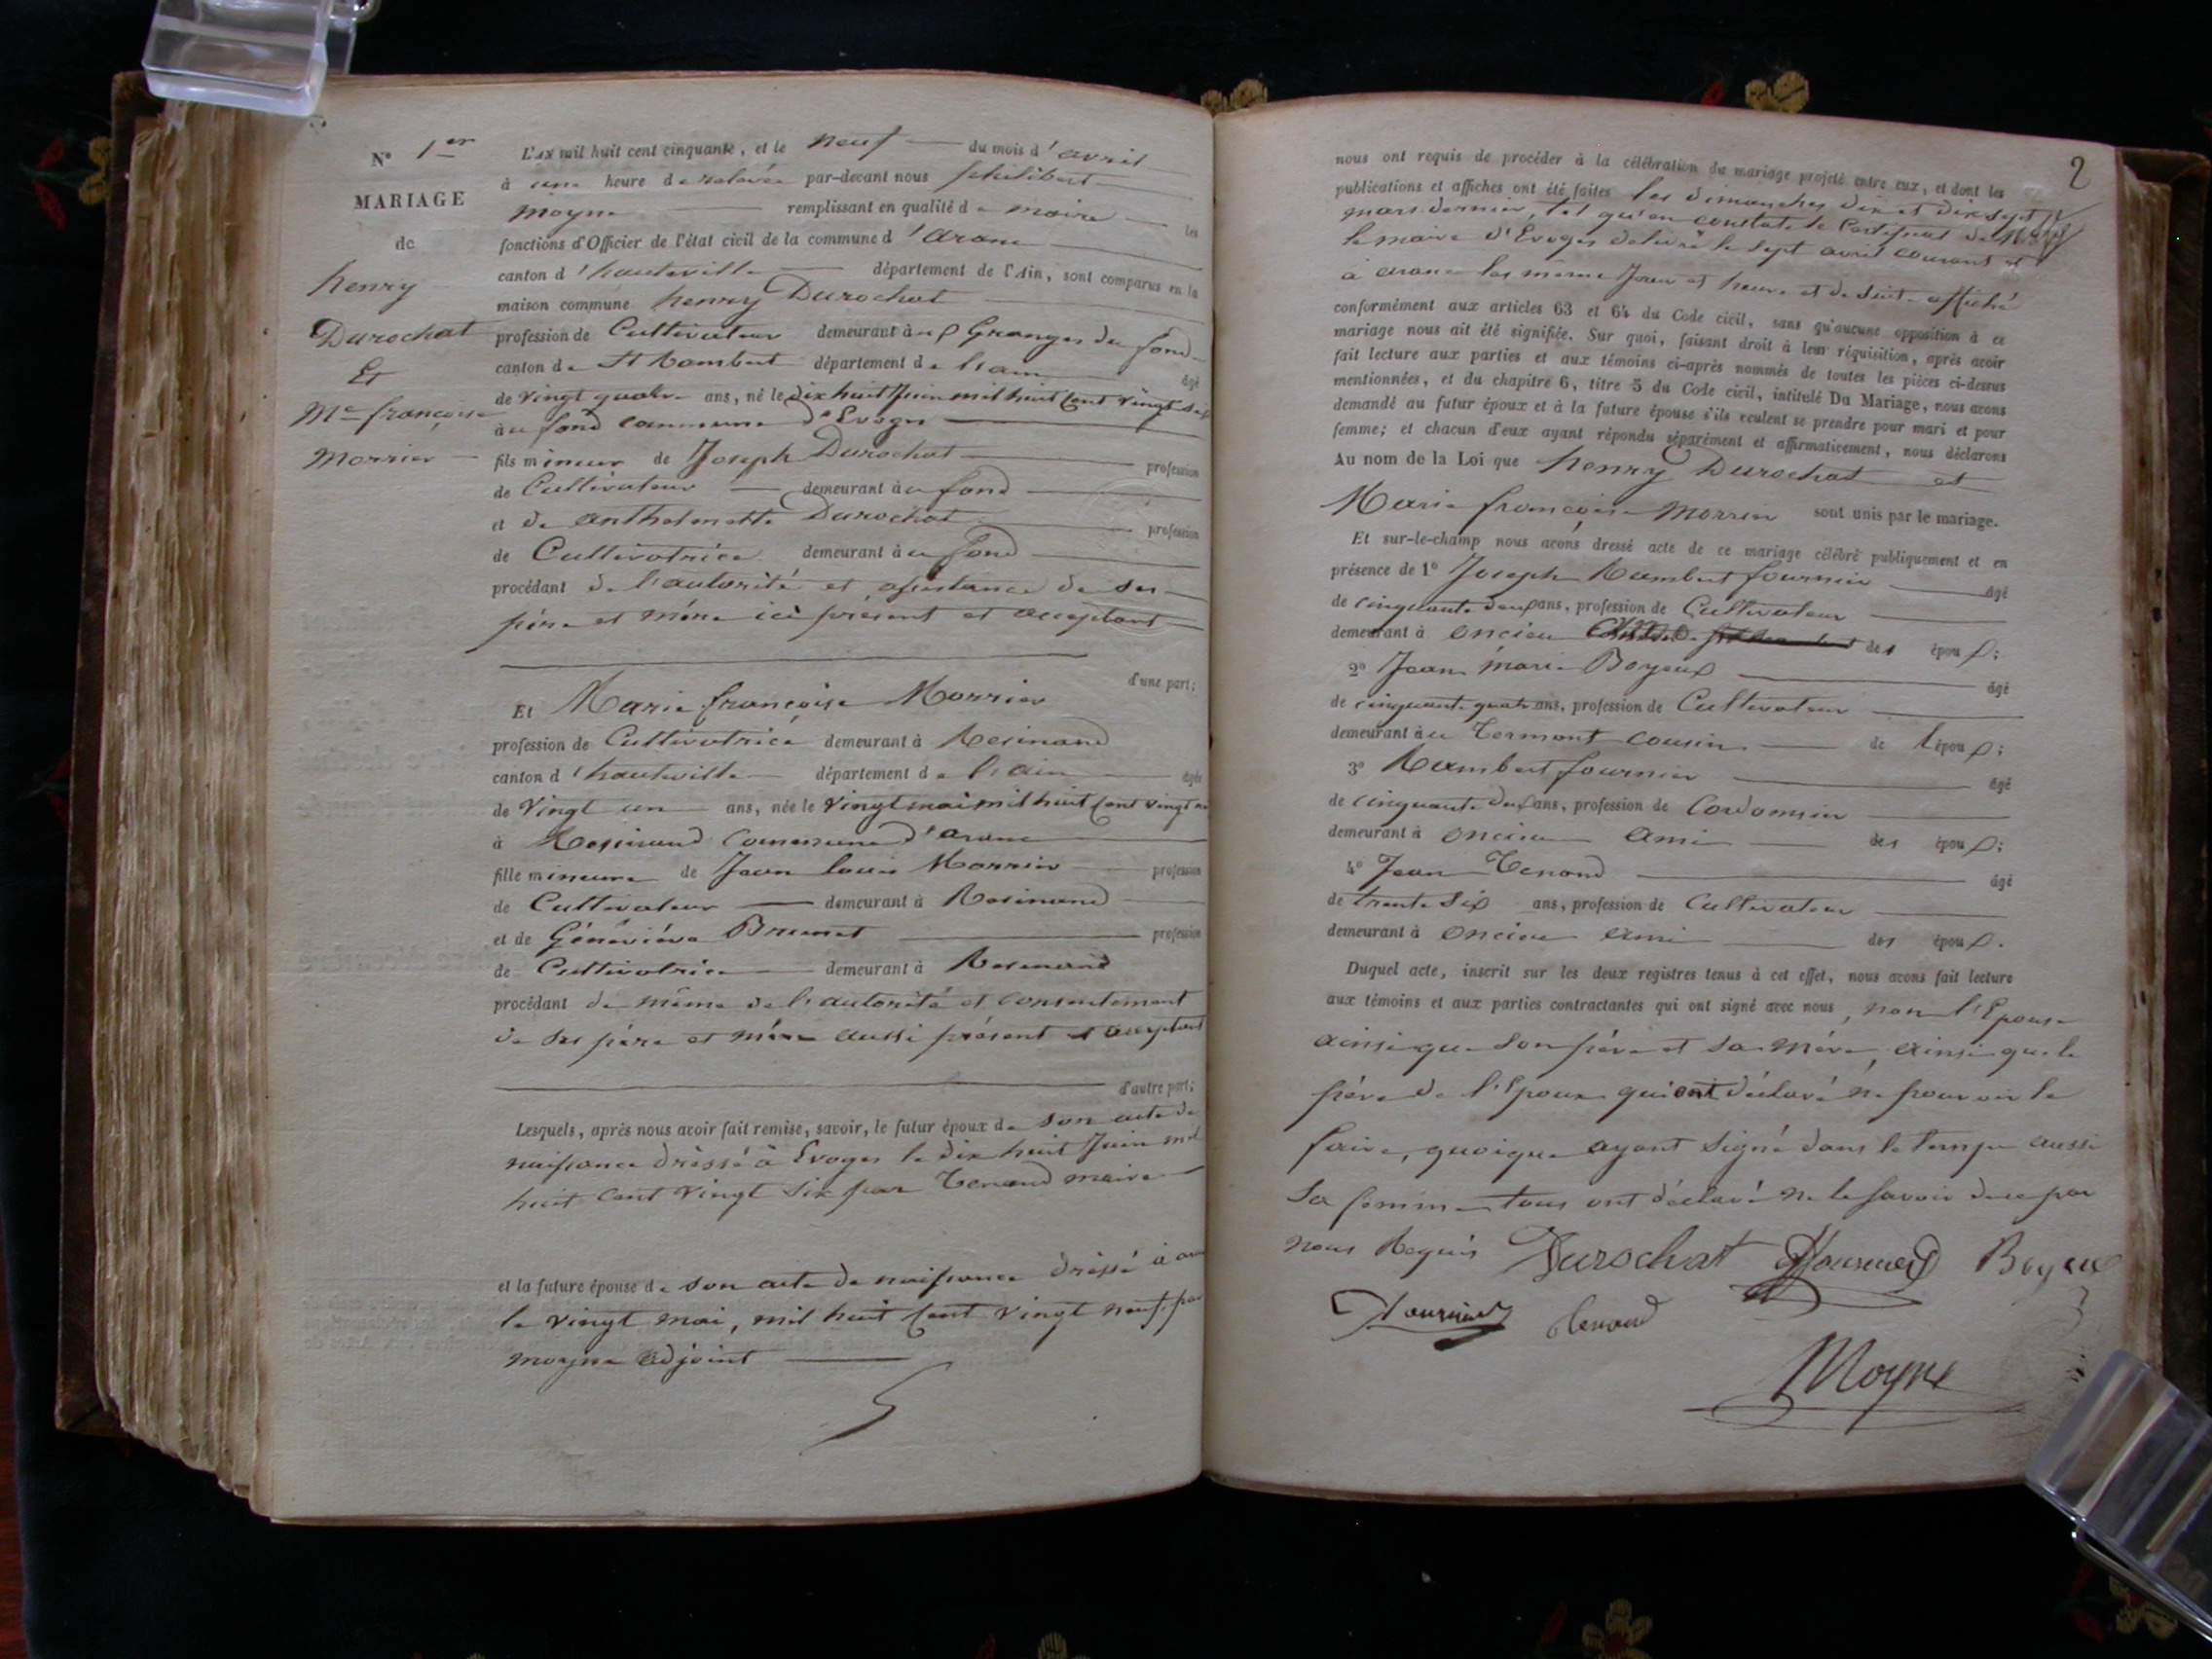 N° 1er
MARIAGE
de
henry
Durochat
Et
Me françoise
Morrier
L'AN mil huit cent cinquante, et le neuf du mois d'avril
à une heure de relevée par-devant nous philibert
moyne remplissant en qualité de maire les
fonctions d'Officier de l'état civil de la commune d'arane
canton d'hauteville département de l'Ain, sont comparus en la
maison commune henry Durochat
profession de Cultivateur demeurant aux Granges du fond
canton de St Rambert département de l'ain âgé
de vingt quatre ans, né le dix huit Juin mil huit Cent vingt six
à au fond commune d'Evoges
fils mineur de Joseph Durochat profession
de Cultivateur demeurant à au fond
et de anthelmette Durochat profession
de Cultivatrice demeurant à au fond
procédant de l'autorité et assistance de ses
père et mère ici présent et acceptant
d'une part;
Et Marie françoise Morrier
profession de Cultivatrice demeurant à Resinand
canton d'hauteville département de l'ain âgée
de vingt un ans, née le vingt mai mil huit Cent vingt
à Resinand Commune d'arane
fille mineure de Jean louis Morrier profession
de Cultivateur demeurant à Resinand
et de Généviève Brunet profession
de Cultivatrice demeurant à Resinand
procédant de même de l'autorité et consentement
de ses père et mère aussi présent et acceptant
d'autre part;
Lesquels, après nous avoir fait remise, savoir, le futur époux de son acte de
naissance dréssé à Evoges le dix huit Juin mil
huit cent vingt six par Tenand maire
et la future épouse de son acte de naissance dréssé à
le vingt mai, mil huit Cent vingt neuf, par
moyne adjoint
2
nous ont requis de procéder à la célébration du mariage projeté entre eux, et dont les
publications et affiches ont été faites les dimanches dix et dix sept
mars dernier, tel qu'en constate le Certificat de
le maire d'Evoges delivré le sept avril courant et
à arane les même Jour et heure et de suite affiché
conformément aux articles 63 et 64 du Code civil, sans qu'aucune opposition à ce
mariage nous ait été signifiée. Sur quoi, faisant droit à leur réquisition, après avoir
fait lecture aux parties et aux témoins ci-après nommés de toutes les pièces ci-dessus
mentionnées, et du chapitre 6, titre 5 du Code civil, intitulé Du Mariage, nous avons
demandé au futur époux et à la future épouse s'ils veulent se prendre pour mari et pour
femme; et chacun d'eux ayant répondu séparément et affirmativement, nous déclarons
Au nom de la Loi que henry Durochat et
Marie françoise Morrier sont unis par le mariage.
Et sur-le-champ nous avons dressé acte de ce mariage célébré publiquement et en
présence de 1° Joseph Rambert fournier âgé
de cinquante deux ans, profession de Cultivateur
demeurant à oncieu des époux;
2° Jean marie Boyeux âgé
de cinquante quatre ans, profession de Cultivateur
demeurant au Termont cousin de l'époux;
3° Rambert fournier âgé
de cinquante deux ans, profession de Cordonnier
demeurant à oncieu ami des époux;
4° Jean Tenand âgé
de trente six ans, profession de Cultivateur
demeurant à oncieu ami des époux.
Duquel acte, inscrit sur les deux registres tenus à cet effet, nous avons fait lecture
aux témoins et aux parties contractantes qui ont signé avec nous, non l'Epouse
ainsi que son père et sa mère, ainsi que le
père de l'Epoux qui ont déclaré ne pouvoir le
faire, quoique ayant signé dans le temps aussi
sa femme tous ont déclaré ne le savoir de ce par
nous Requis Durochat fournier Boyeux
fournier tenand
Moyne